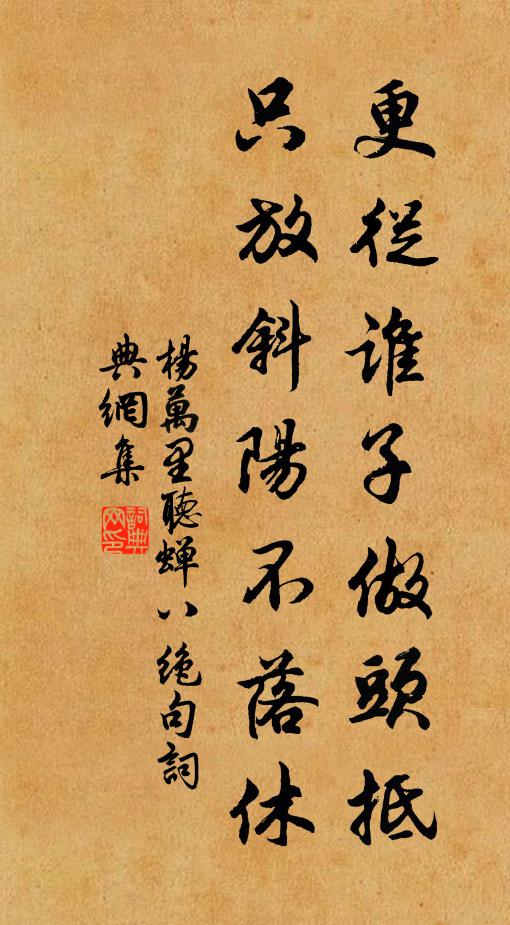 更從誰子做頭抵
只放斜陽不落休
楊萬里聽蟬八絕句詞
典網集
詞典網印